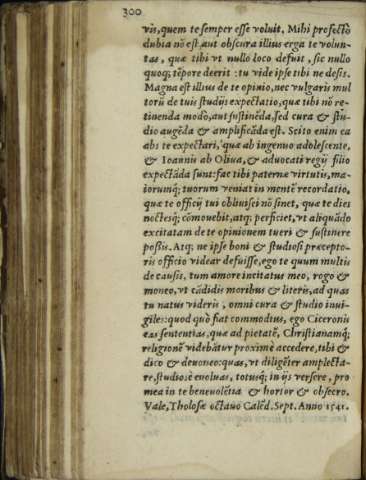 300
vis, quem te semper esse voluit. Mihi profectò
dubia nõ est, aut obscura illius erga te volun-
tas, quæ tibi vt nullo loco defuit, sic nullo
quoq; tẽpore deerit: tu vide ipse tibi ne desis.
Magna est illius de te opinio, nec vulgaris mul
torũ de tuis studijs expectatio, quæ tibi nõ re-
tinenda modò, aut sustinẽda, sed cura & stu-
dio augẽda & amplificãda est. Scito enim ea
abs te expectari, quæ ab ingenuo adolescente,
& Ioannis ab Oliua, & aduocati regij filio
expectãda sunt: fac tibi paternæ virtutis, ma-
iorumq; tuorum veniat in mentẽ recordatio,
quæ te officij tui obliuisci nõ sinet, quæ te dies
noctesq; cõmouebit, atq; perficiet, vt aliquãdo
excitatam de te opinionem tueri & sustinere
poßis. Atq; ne ipse boni & studiosi præcepto-
ris officio videar defuisse, ego te quum multis
de causis, tum amore incitatus meo, rogo &
moneo, vt cãdidis moribus & literis, ad quas
tu natus videris, omni cura & studio inui-
giles: quod quò fiat commodius, ego Ciceronis
eas sententias, quæ ad pietatẽ, Christianamq;
religionẽ videbãtur proximè accedere, tibi &
dico & deuoueo: quas, vt diligẽter amplecta-
re, studiosè euoluas, totusq; in ijs versere, pro
mea in te beneuolẽtia & hortor & obsecro.
Vale, Tholosæ octauo Calẽd. Sept. Anno 1541.